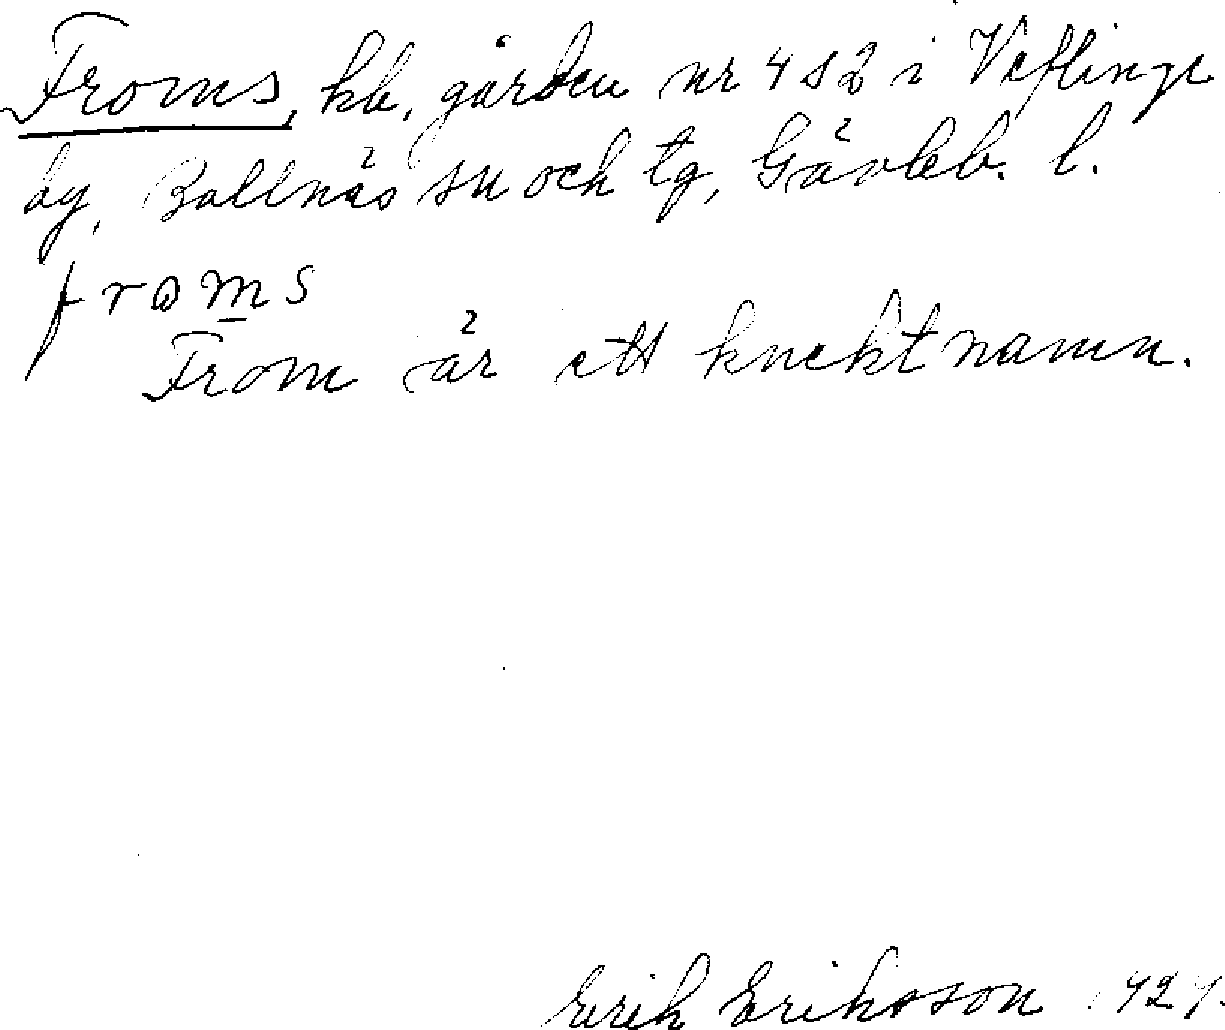 Froms, kb, gården nr 4 s 2 i Veflinge
by, Bollnäs sn och tg, Gävleb. l.
froms
From är ett knektnamn.
Erik Eriksson 1927.